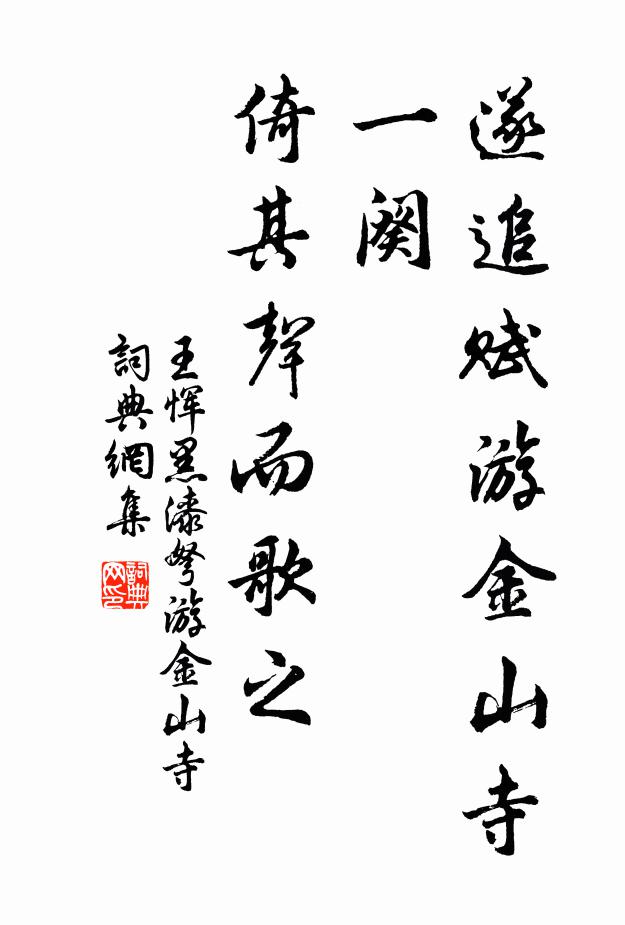 遂追賦游金山寺
一闋
倚其聲而歌之
王惲黑漆弩游金山寺
詞典網集
詞典
网印